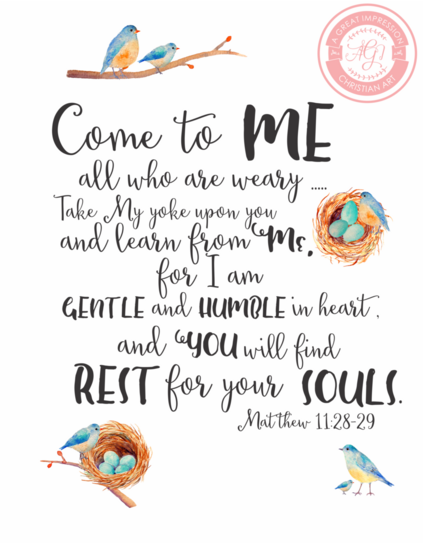 A GREAT IMPRESSION
AGI
CHRISTIAN ART
Come to ME
all who are weary .....
Take My yoke upon you
and learn from Me,
for I am
GENTLE and HUMBLE in heart,
and YOU will find
REST for your SOULS.
Matthew 11:28-29